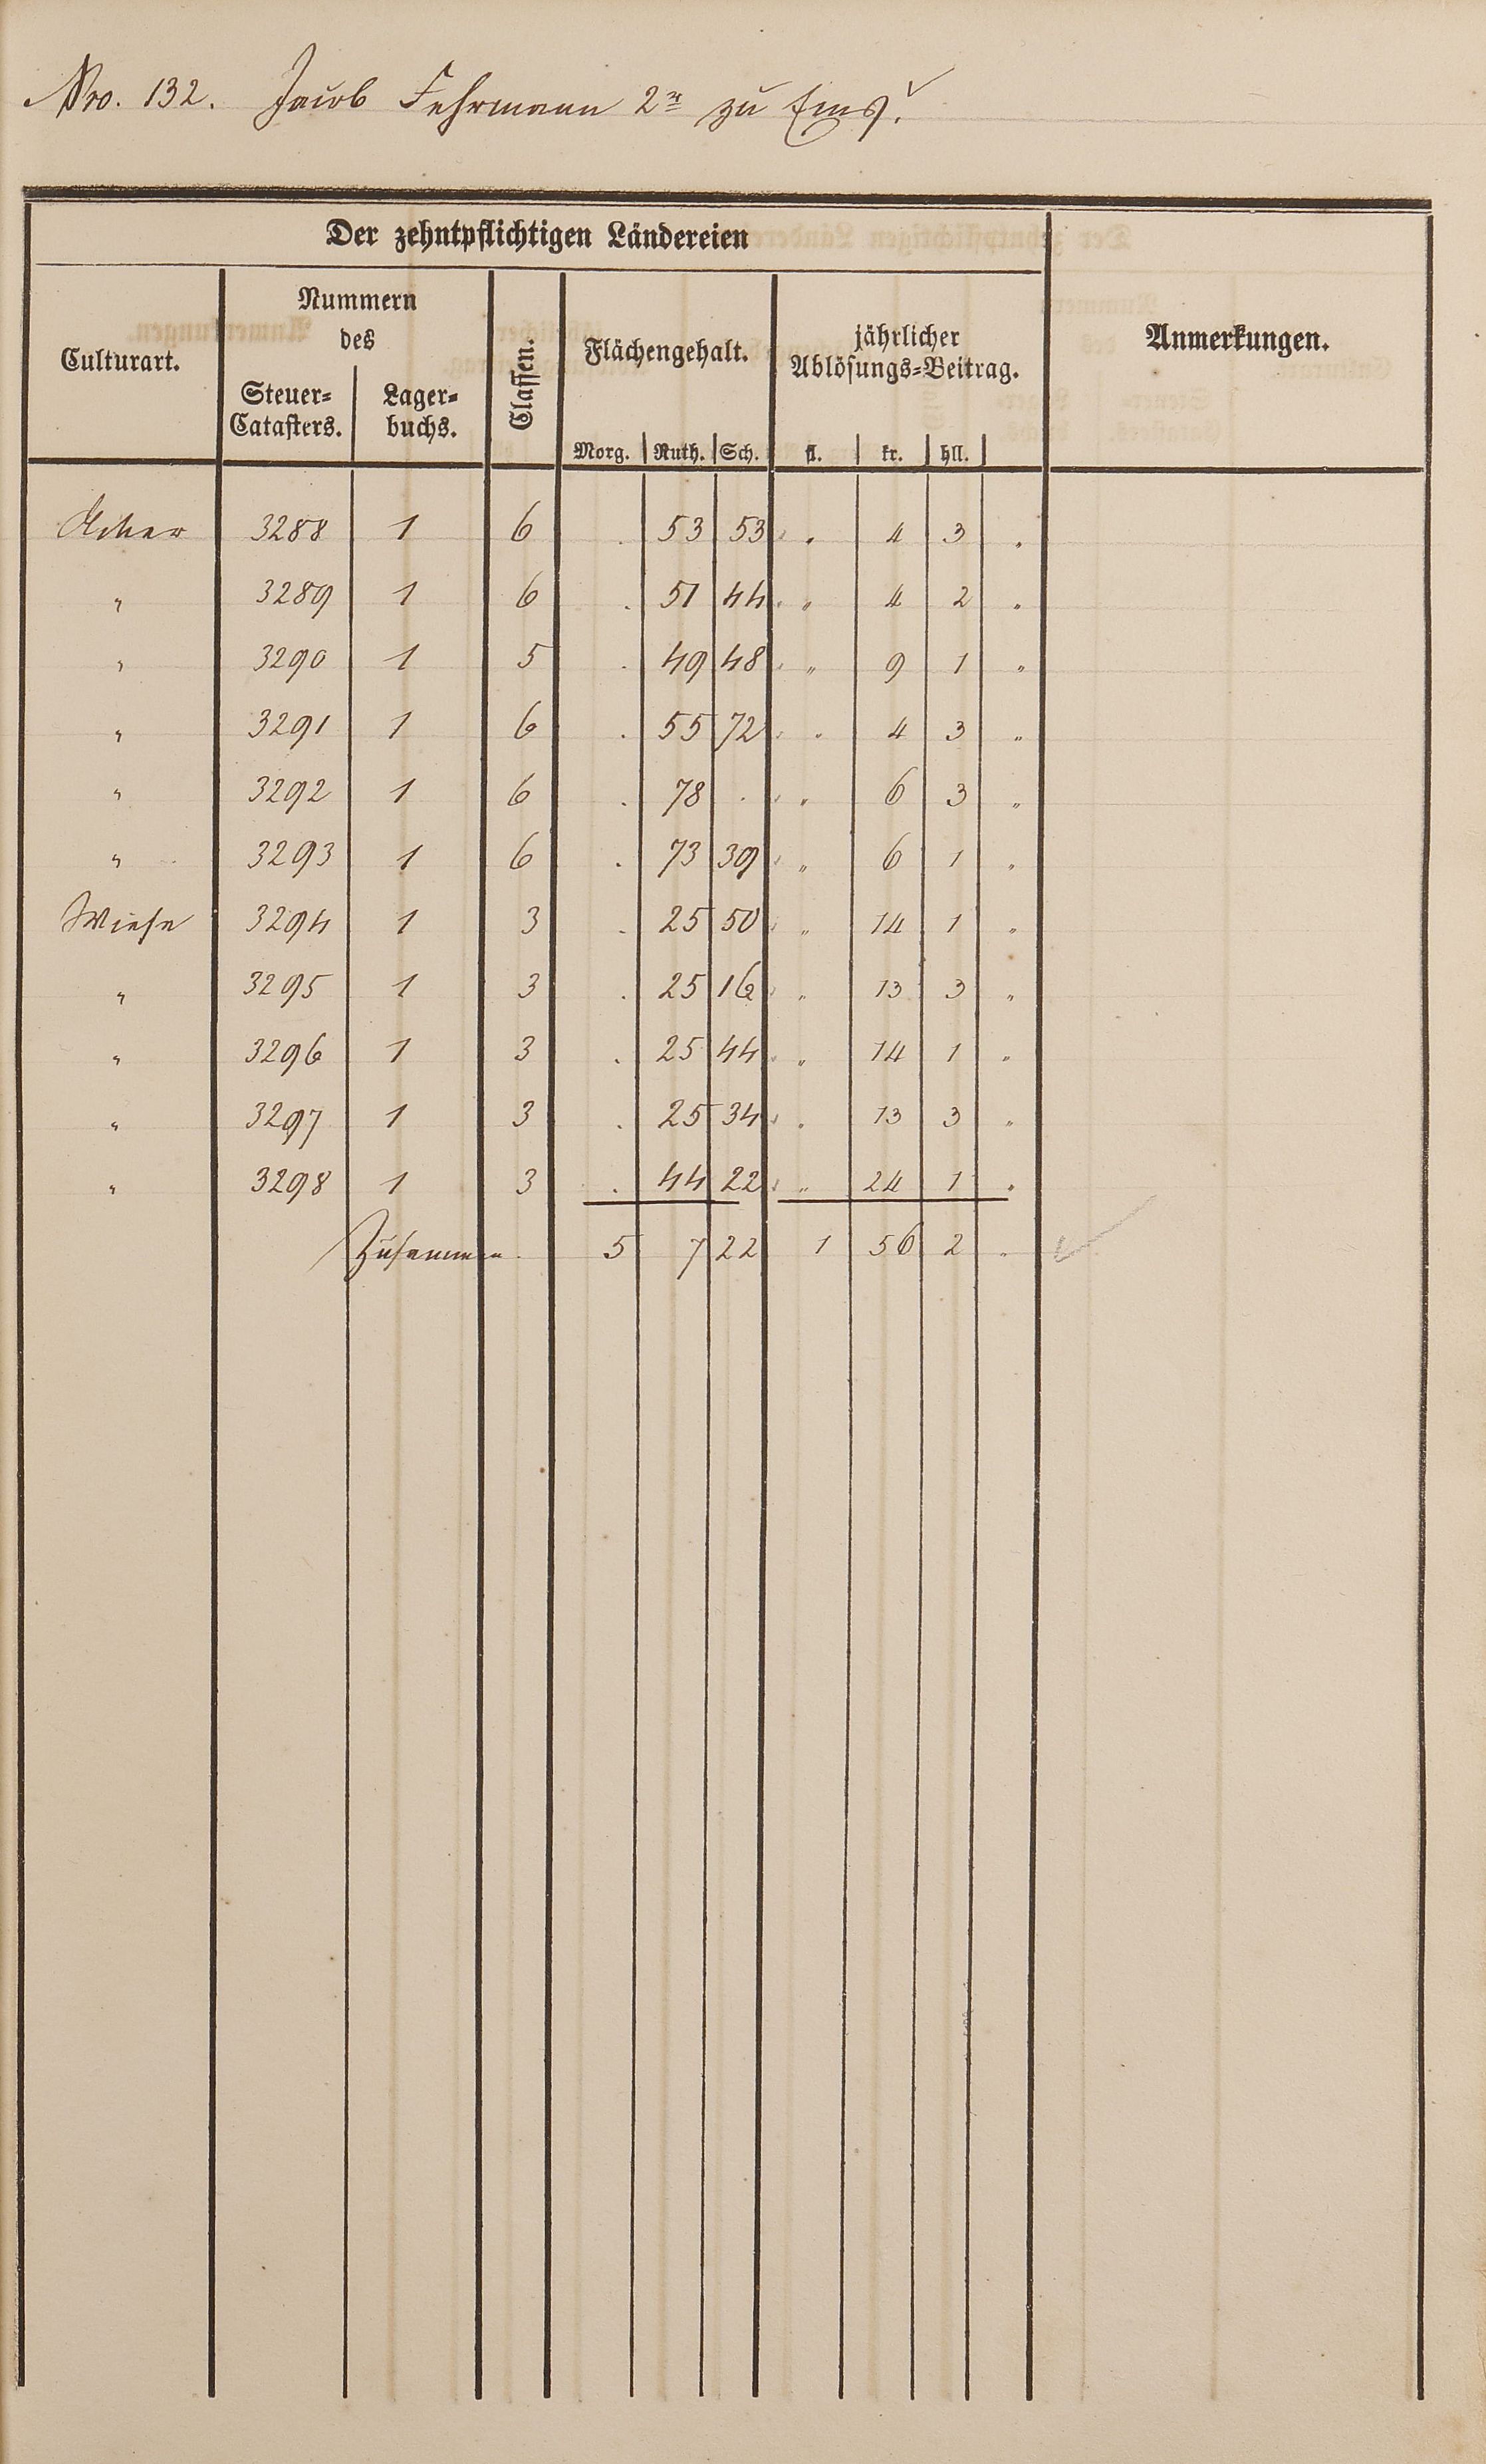 Nro. 132. Jacob Fehrmann 2r zu Ems.
Der zehntpflichtigen Ländereien
Culturart. | Nummern des Steuer-Catasters. | Lager-buchs. | Classen. | Flächengehalt. Morg. | Ruth. | Sch. | jährlicher Ablösungs-Beitrag. fl. | kr. | hll. | Anmerkungen.
Acker 3288 1 6 . 53 53 . 4 3 .
" 3289 1 6 . 51 44 " 4 2 "
" 3290 1 5 . 49 48 " 9 1 "
" 3291 1 6 . 55 72 " 4 3 "
" 3292 1 6 . 78 . " 6 3 "
" 3293 1 6 . 73 39 " 6 1 "
Wiese 3294 1 3 . 25 50 " 14 1 "
" 3295 1 3 . 25 16 " 13 3 "
" 3296 1 3 . 25 44 " 14 1 "
" 3297 1 3 . 25 34 " 13 3 "
" 3298 1 3 . 44 22 " 24 1 "
Zusammen . 5 7 22 1 56 2 "